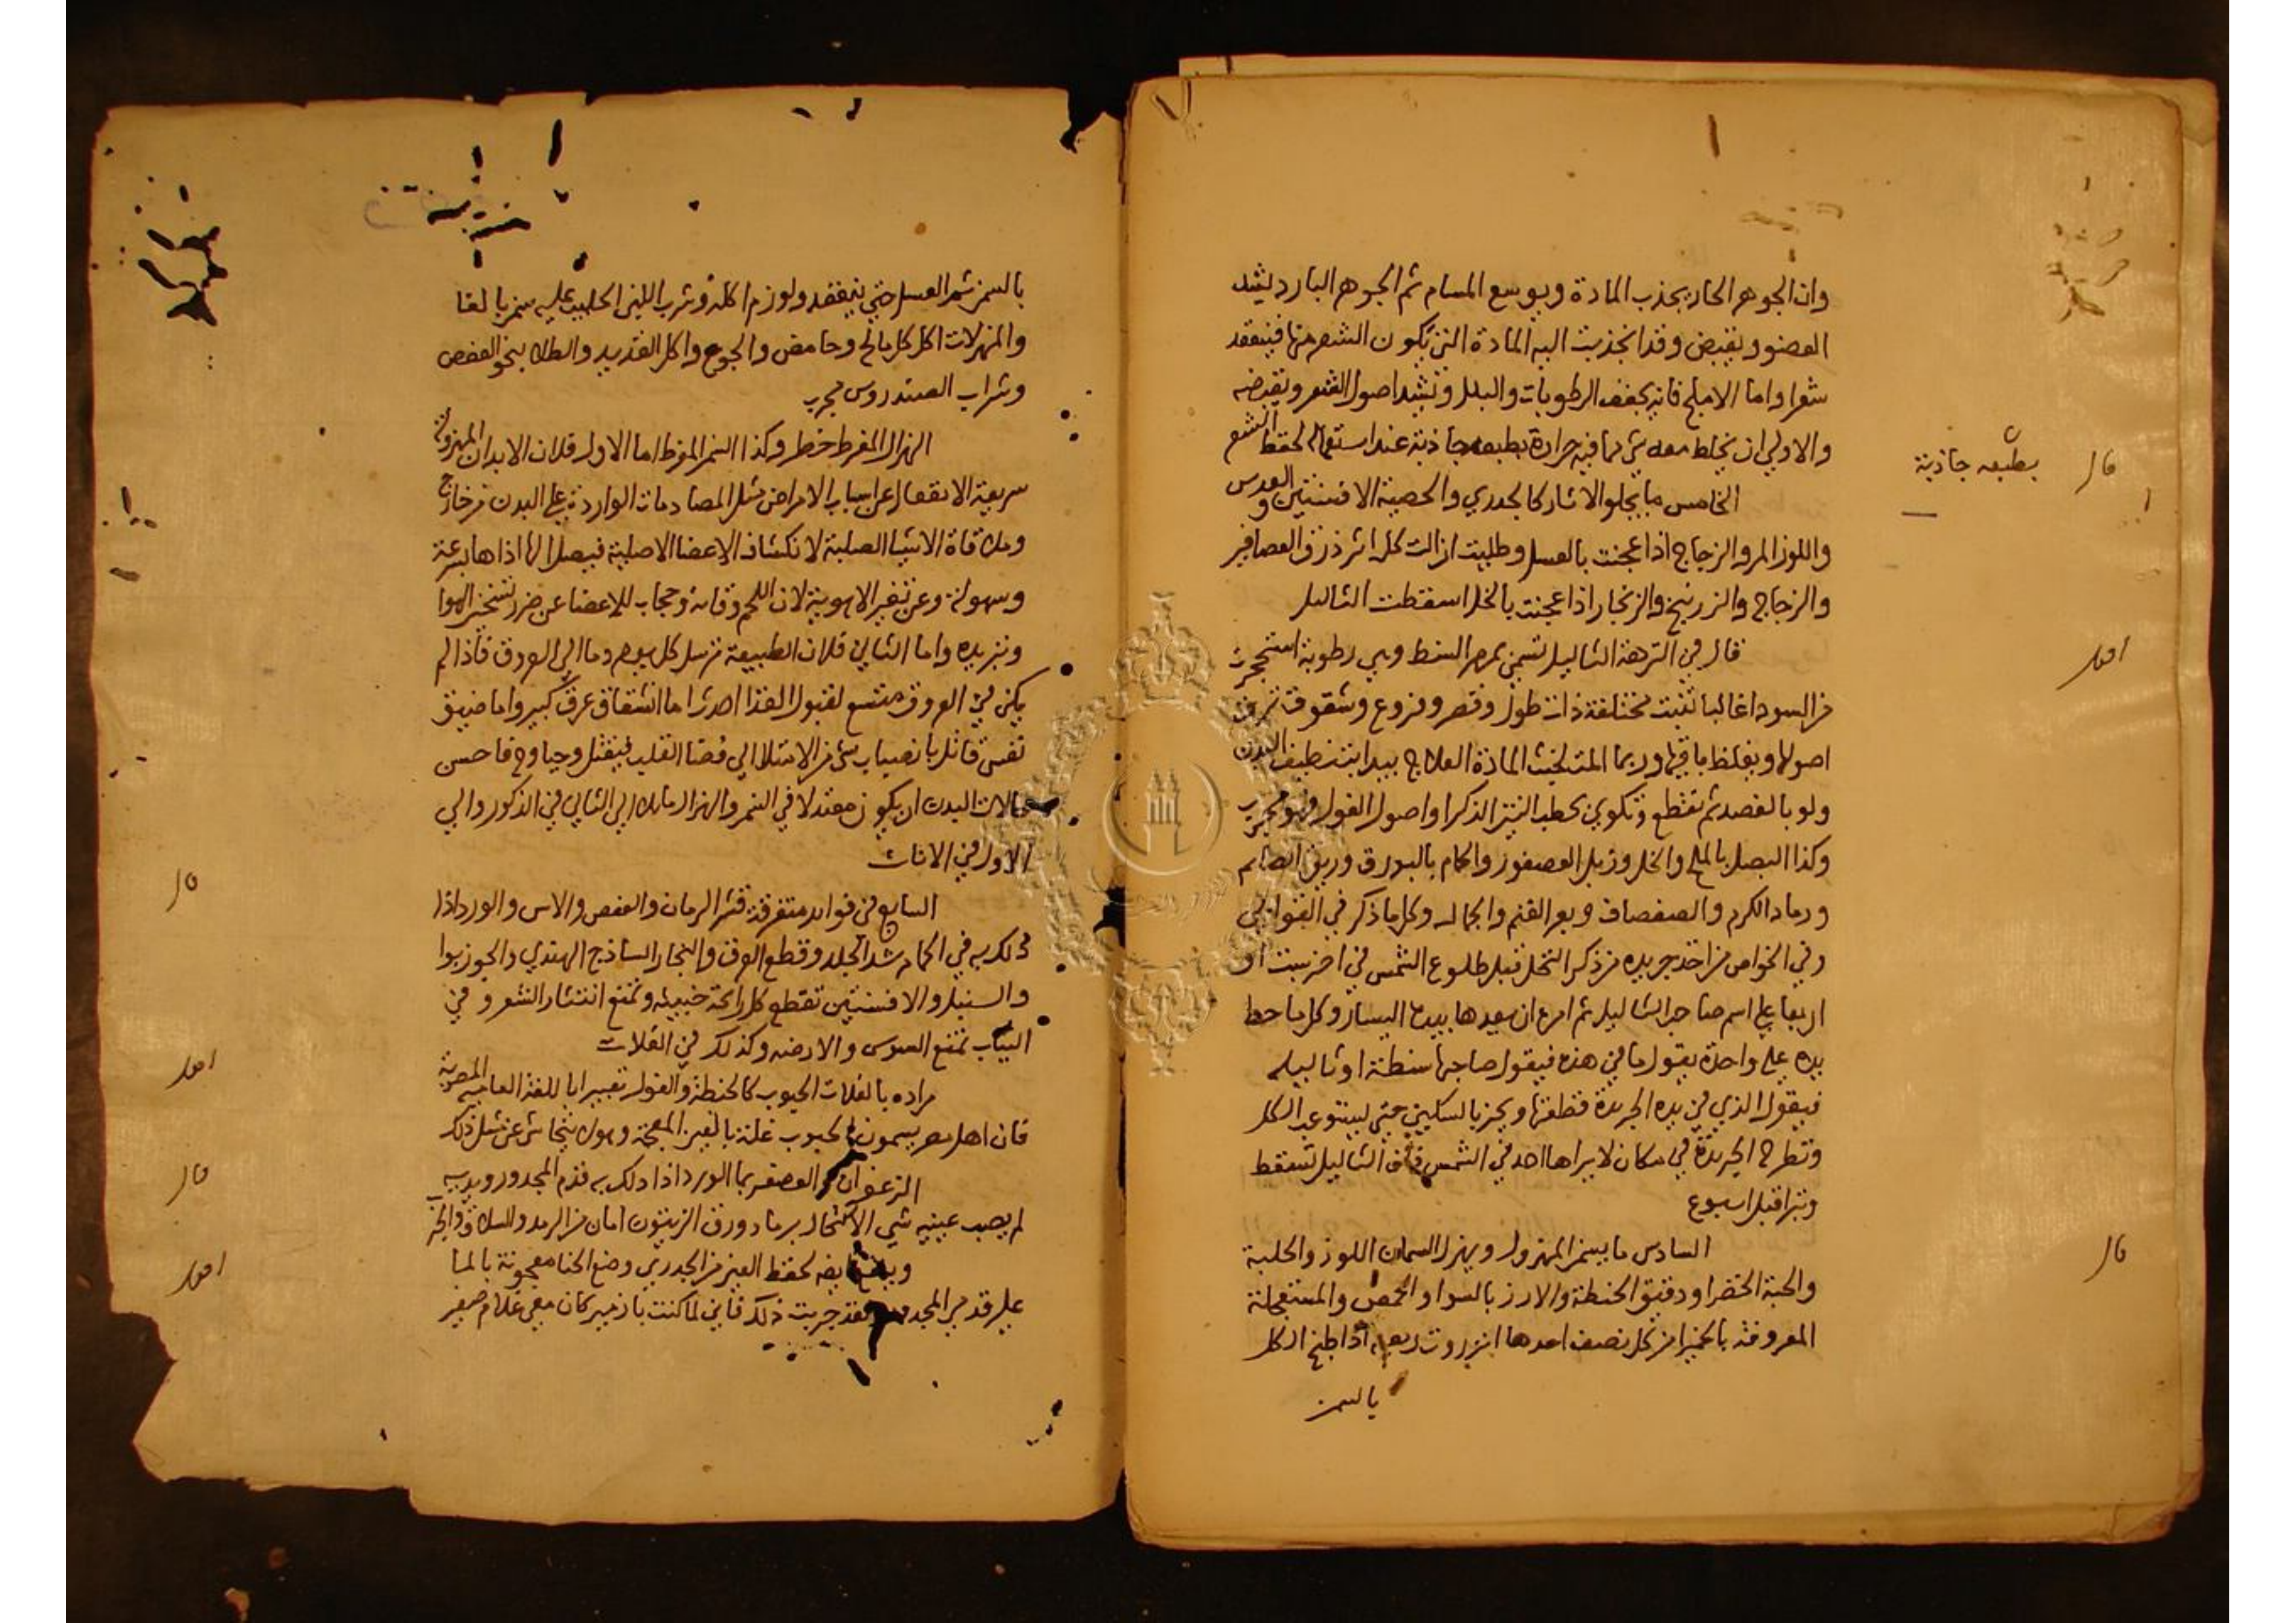 وان الجوهر الحار يجذب المادة ويوسع المسام ثم الجوهر البارد يشد
العضو ويقبض وقد انجذبت اليه المادة التي يكون الشعر منها فينعقد
شعرا واما الاملج فانه يجفف الرطوبات والبلل وتشد اصول الشعر وتقبضه
والاولي ان يخلط معه شي مما فيه حرارة بطبعه جاذبة عند استعماله لحفظ الشعر
قال
بطبعه جاذبة
الخامس ما يجلو الاثار كالجدري والحصبة الافسنتين والعدس
واللوز المر والزجاج اذا عجنت بالعسل وطليت ازالت كل اثر ذرق العصافير
والزجاج والزرنيخ والزنجار اذا عجنت بالخل اسقطت الثاليل
اقول
قال في النزهة الثاليل تسمي بمصر السنط وهي رطوبة استحجرت
من السودا غالبا تنبت مختلفة ذات طول وقصر وفروع وشقوق ترق
اصولها ويغلظ باقيها وربما المت لخبث المادة العلاج يبدا بتنظيف البدن
ولو بالفصد ثم تقطع وتكوي بحطب التين الذكر او اصول الفول فهو مجرب
وكذا البصل بالملح والخل وزبل العصفور والحمام بالبورق وريق الصايم
ورماد الكرم والصفصاف وبعر الغنم والجمال وكل ما ذكر في القوابي
وفي الخواص من اخذ جريده من ذكر النخل قبل طلوع الشمس في اخر سبت او
اربعا علي اسم صاحب الثاليل ثم امره ان يعدها بيده اليسار وكل ما حط
يده علي واحدة يقول ما في هذه فيقول صاحبها سنطة او ثاليله
فيقول الذي في يده الجريدة قطعتها ويحز بالسكين حتي يستوعب الكل
وتطرح الجريدة في مكان لا يراها احد في الشمس فان الثاليل تسقط
وتبرا قبل اسبوع
قال
السادس ما يسمن المهزول ويهزل السمان اللوز والحلبة
والحبة الخضرا ودقيق الحنطة والارز بالسوا والحمص والمستعجلة
المعروفة بالخميرا من كل نصف احدها انزروت ربعه اذا طبخ الكل
بالسمن
بالسمن ثم العسل حتي ينعقد ولوزم اكله وشرب اللبن الحليب عليه سمن بالغا
والمهزلات اكل كل مالح وحامض والجوع واكل القديد والطلا بنحو العفص
وشراب السندروس مجرب
الهزال المفرط خطر وكذا السمن المفرط اما الاول فلان الابدان المهزولة
سريعة الانفعال عن اسباب الامراض مثل المصادمات الواردة علي البدن من خارج
وملاقاة الاشيا الصلبة لانكشاف الاعضا الاصلية فيصل اليها اذاها بسرعة
وسهولة وعن تغير الاهوية لان اللحم وقاية وحجاب للاعضا عن ضرر تسخين الهوا
وتبريده واما الثاني فلان الطبيعة ترسل كل يوم دما الي العروق فاذا لم
يكن في العروق متسع لقبول الغذا احدث اما انشقاق عرق كبير واما ضيق
نفس قاتل بانصباب شي من الامتلا الي فضا القلب فيقتل وحيا وح فاحسن
حالات البدن ان يكون معتدلا في السمن والهزال مايلا الي الثاني في الذكور والي
الاول في الاناث
قال
السابع في فوايد متفرقة قشر الرمان والعفص والاس والورد اذا
دلك به في الحمام شد الجلد وقطع العرق والبخار الساذج الهندي والجوزبوا
والسنبل والافسنتين تقطع كل رائحة خبيثه وتمنع انتشار الشعر وفي
الثياب تمنع السوس والارضه وكذلك في الغلات
اقول
مراده بالغلات الحبوب كالحنطة والفول تعبيرا باللغة العامية المصرية
فان اهل مصر يسمون الحبوب غلة بالغين المعجمة وهو لا يتحاشى عن مثل ذلك
قال
الزعفران والعصفر بما الورد اذا دلك به قدم المجدور ويديه
لم يصب عينيه شي الاكتحال برماد ورق الزيتون امان من الرمد والسلاق والحز
اقول
ايضا لحفظ العين من الجدري وضع الحنا معجونة بالما
علي قدمي المجدور فقد جربت ذلك فاني لما كنت بازمير كان معي غلام صغير